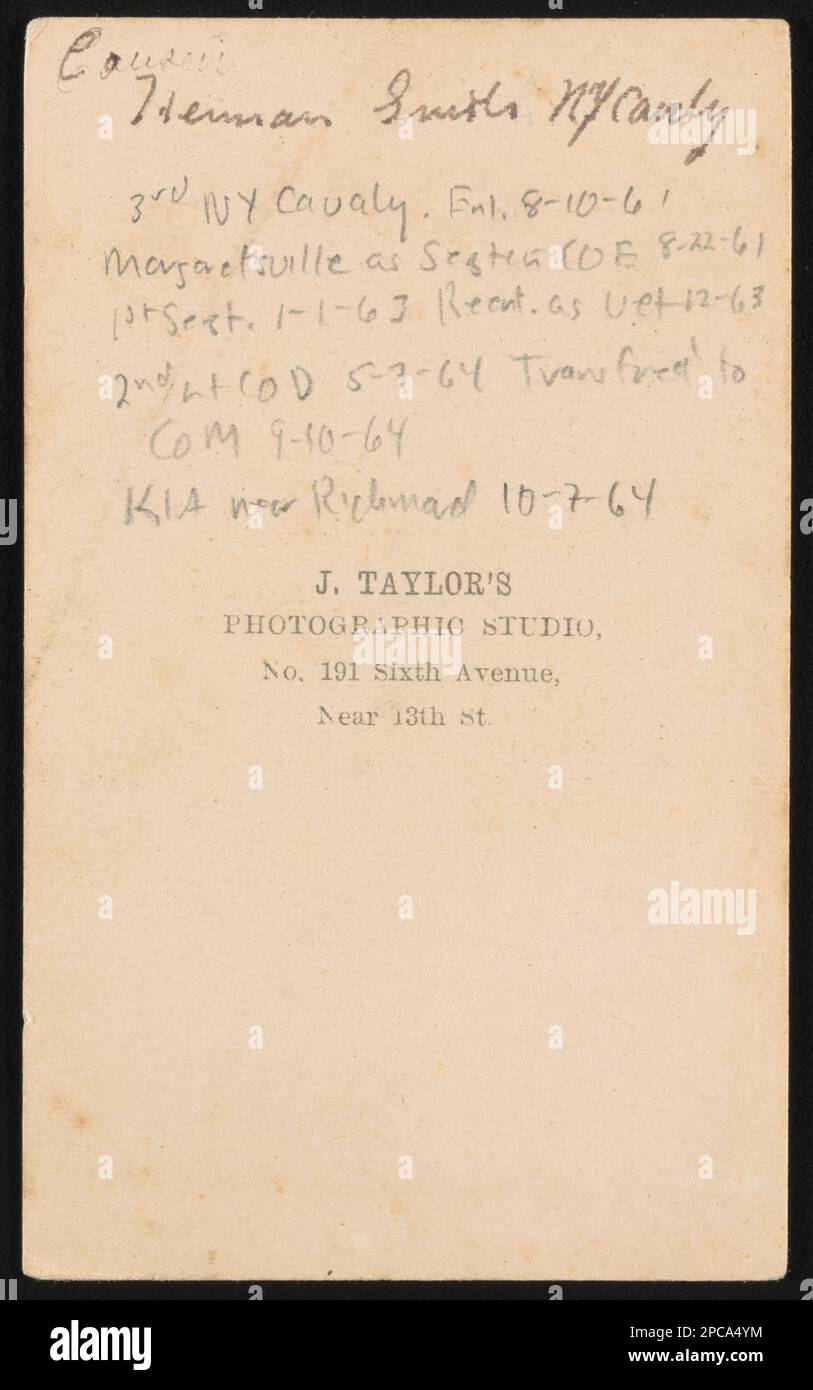 Cousin
Herman Smith NYCavly
3rd NY Cavaly. Enl. 8-10-61
Margaretsville as Segt in CO E 8-22-61
1st Segt. 1-1-63 Reenl. as Vet 12-63
2nd Lt CO D 5-7-64 Transfred to
Co M 9-10-64
KIA near Richmad 10-7-64
J. TAYLOR'S
PHOTOGRAPHIC STUDIO,
No. 191 Sixth Avenue,
Near 13th St.
alamy
Image ID: 2PCA4YM
www.alamy.com